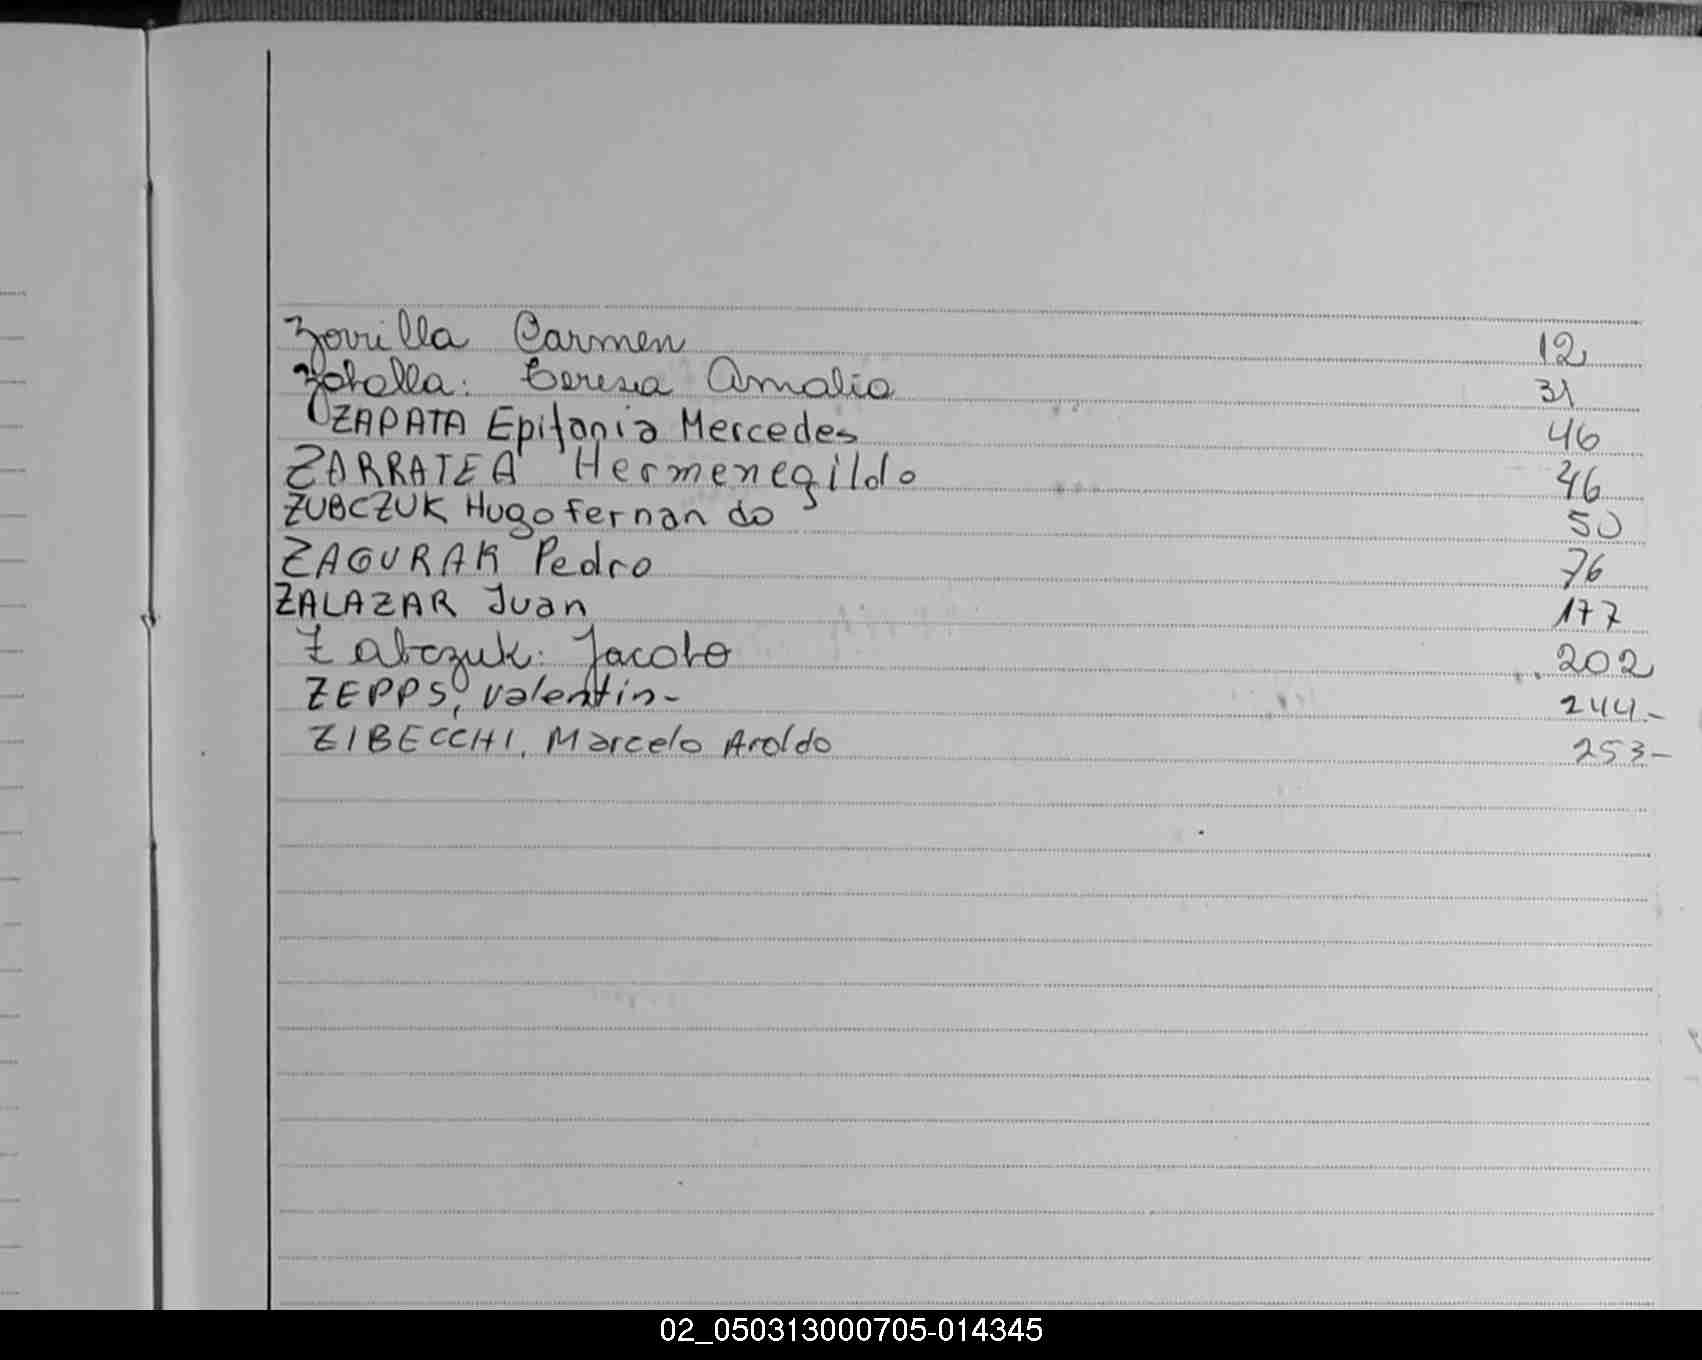 Zorrilla Carmen 12
Zaballa. Teresa Amalia 31
ZAPATA Epifania Mercedes 46
ZARRATEA Hermenegildo 46
ZUBCZUK Hugo fernando 50
ZAGURAK Pedro 76
ZALAZAR Juan 177
Zabczuk. Jacobo 202
ZEPPS, Valentin- 244.-
ZIBECCHI, Marcelo Aroldo 253-
02_050313000705-014345